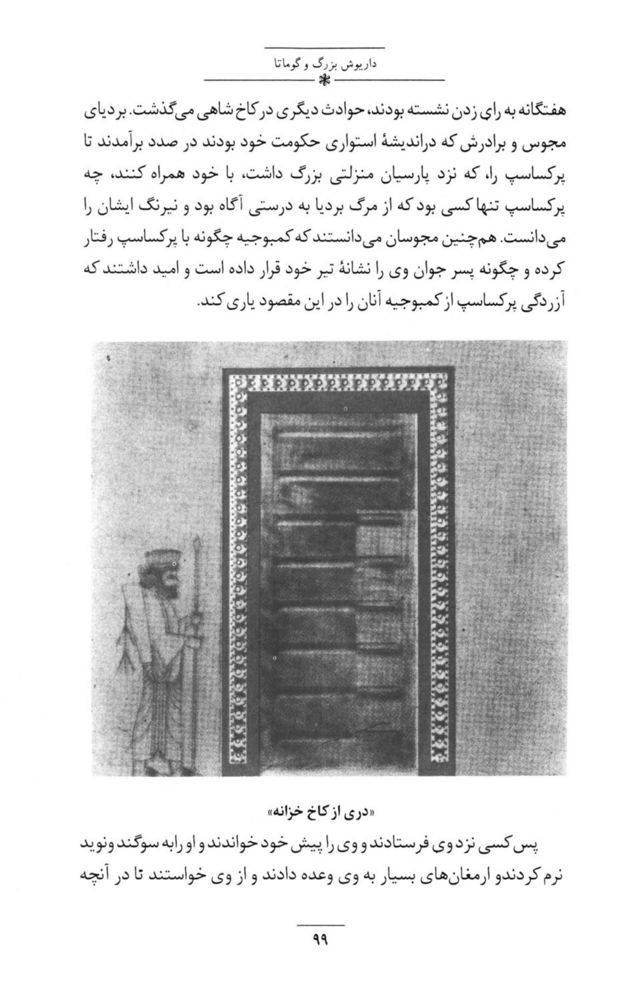 داریوش بزرگ و گوماتا
هفتگانه به رای زدن نشسته بودند، حوادث دیگری در کاخ شاهی می‌گذشت. بردیای
مجوس و برادرش که دراندیشهٔ استواری حکومت خود بودند در صدد برآمدند تا
پرکساسپ را، که نزد پارسیان منزلتی بزرگ داشت، با خود همراه کنند، چه
پرکساسپ تنها کسی بود که از مرگ بردیا به درستی آگاه بود و نیرنگ ایشان را
می‌دانست. هم‌چنین مجوسان می‌دانستند که کمبوجیه چگونه با پرکساسپ رفتار
کرده و چگونه پسر جوان وی را نشانهٔ تیر خود قرار داده است و امید داشتند که
آزردگی پرکساسپ از کمبوجیه آنان را در این مقصود یاری کند.
«دری از کاخ خزانه»
پس کسی نزد وی فرستادند و وی را پیش خود خواندند و او رابه سوگند ونوید
نرم کردندو ارمغان‌های بسیار به وی وعده دادند و از وی خواستند تا در آنچه
۹۹